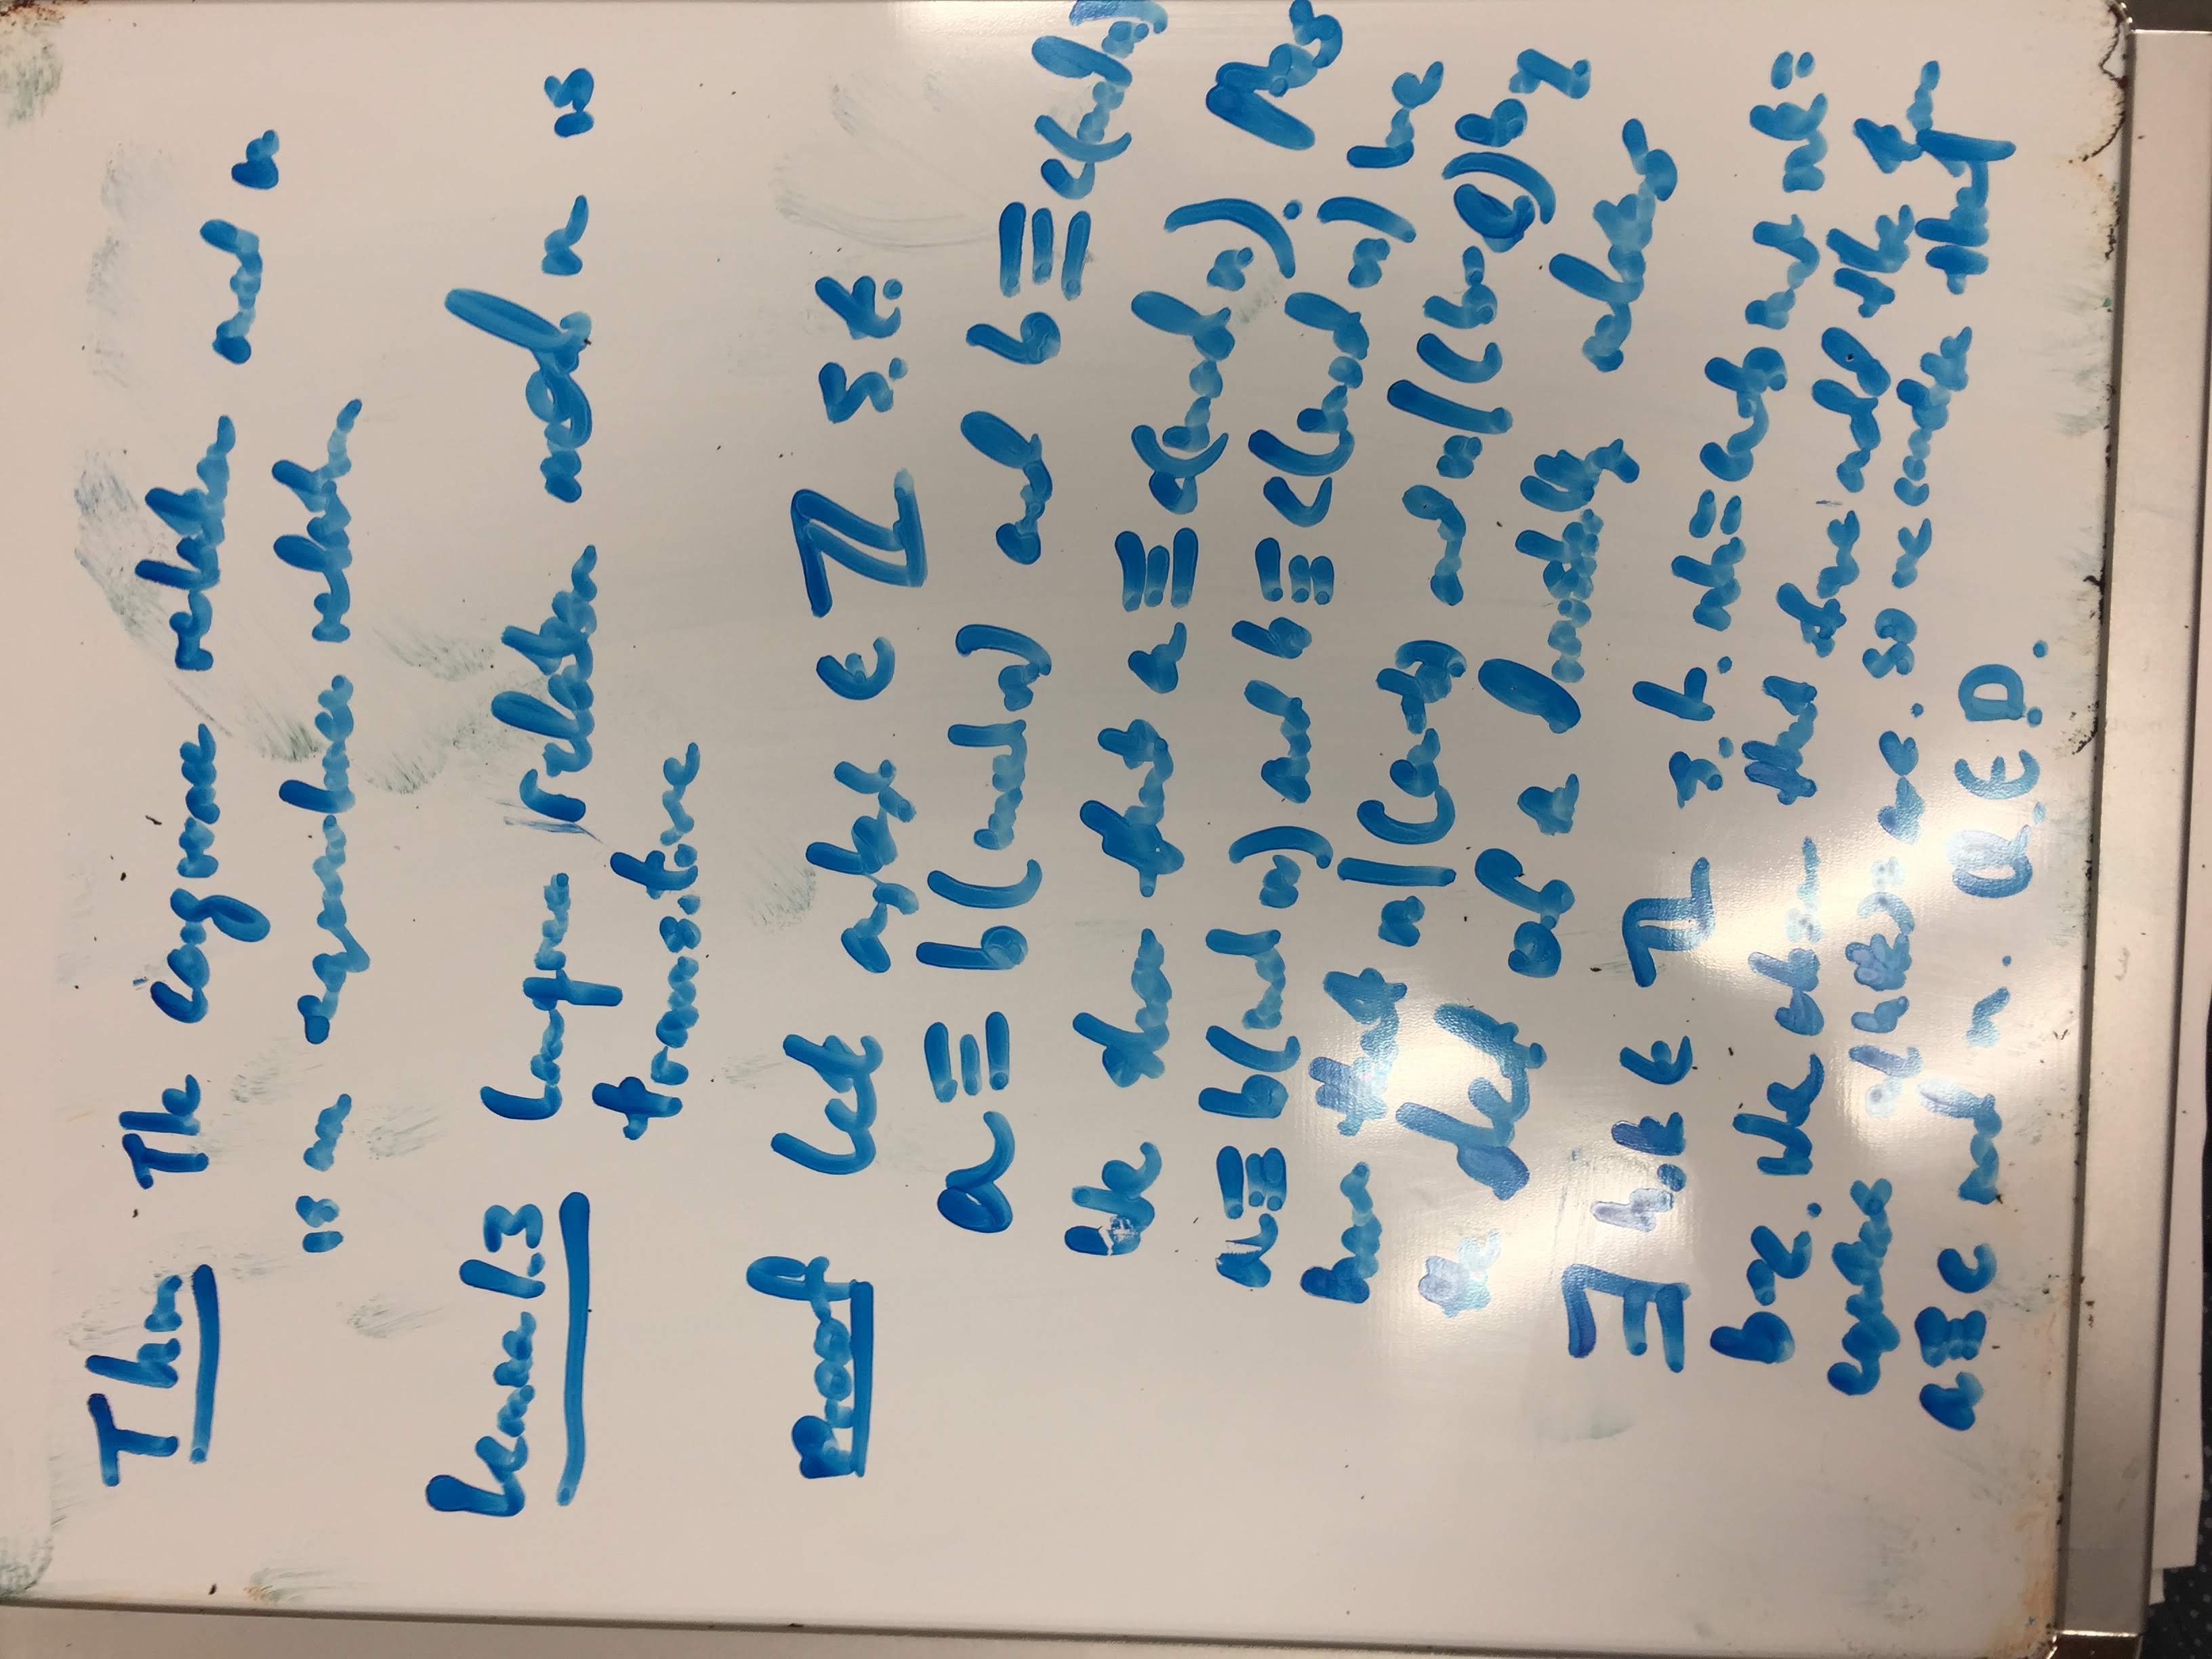 Thm The congruence relation mod n
is an equivalence relation
Lemma 1.3 Congruence relation mod n is
transitive
Proof Let a,b,c ∈ ℤ s.t.
a ≡ b (mod n) and b ≡ c (mod n)
We show that a ≡ c (mod n). As
a ≡ b (mod n) and b ≡ c (mod n) we
have that n|(a-b) and n|(b-c) by
the def of the divisibility relation
∃ h,k ∈ ℤ s.t. nh = a-b and nk =
b-c. We observe that if we add the two
equations n(h+k) = a-c. So we conclude that
a ≡ c mod n. Q.E.D.